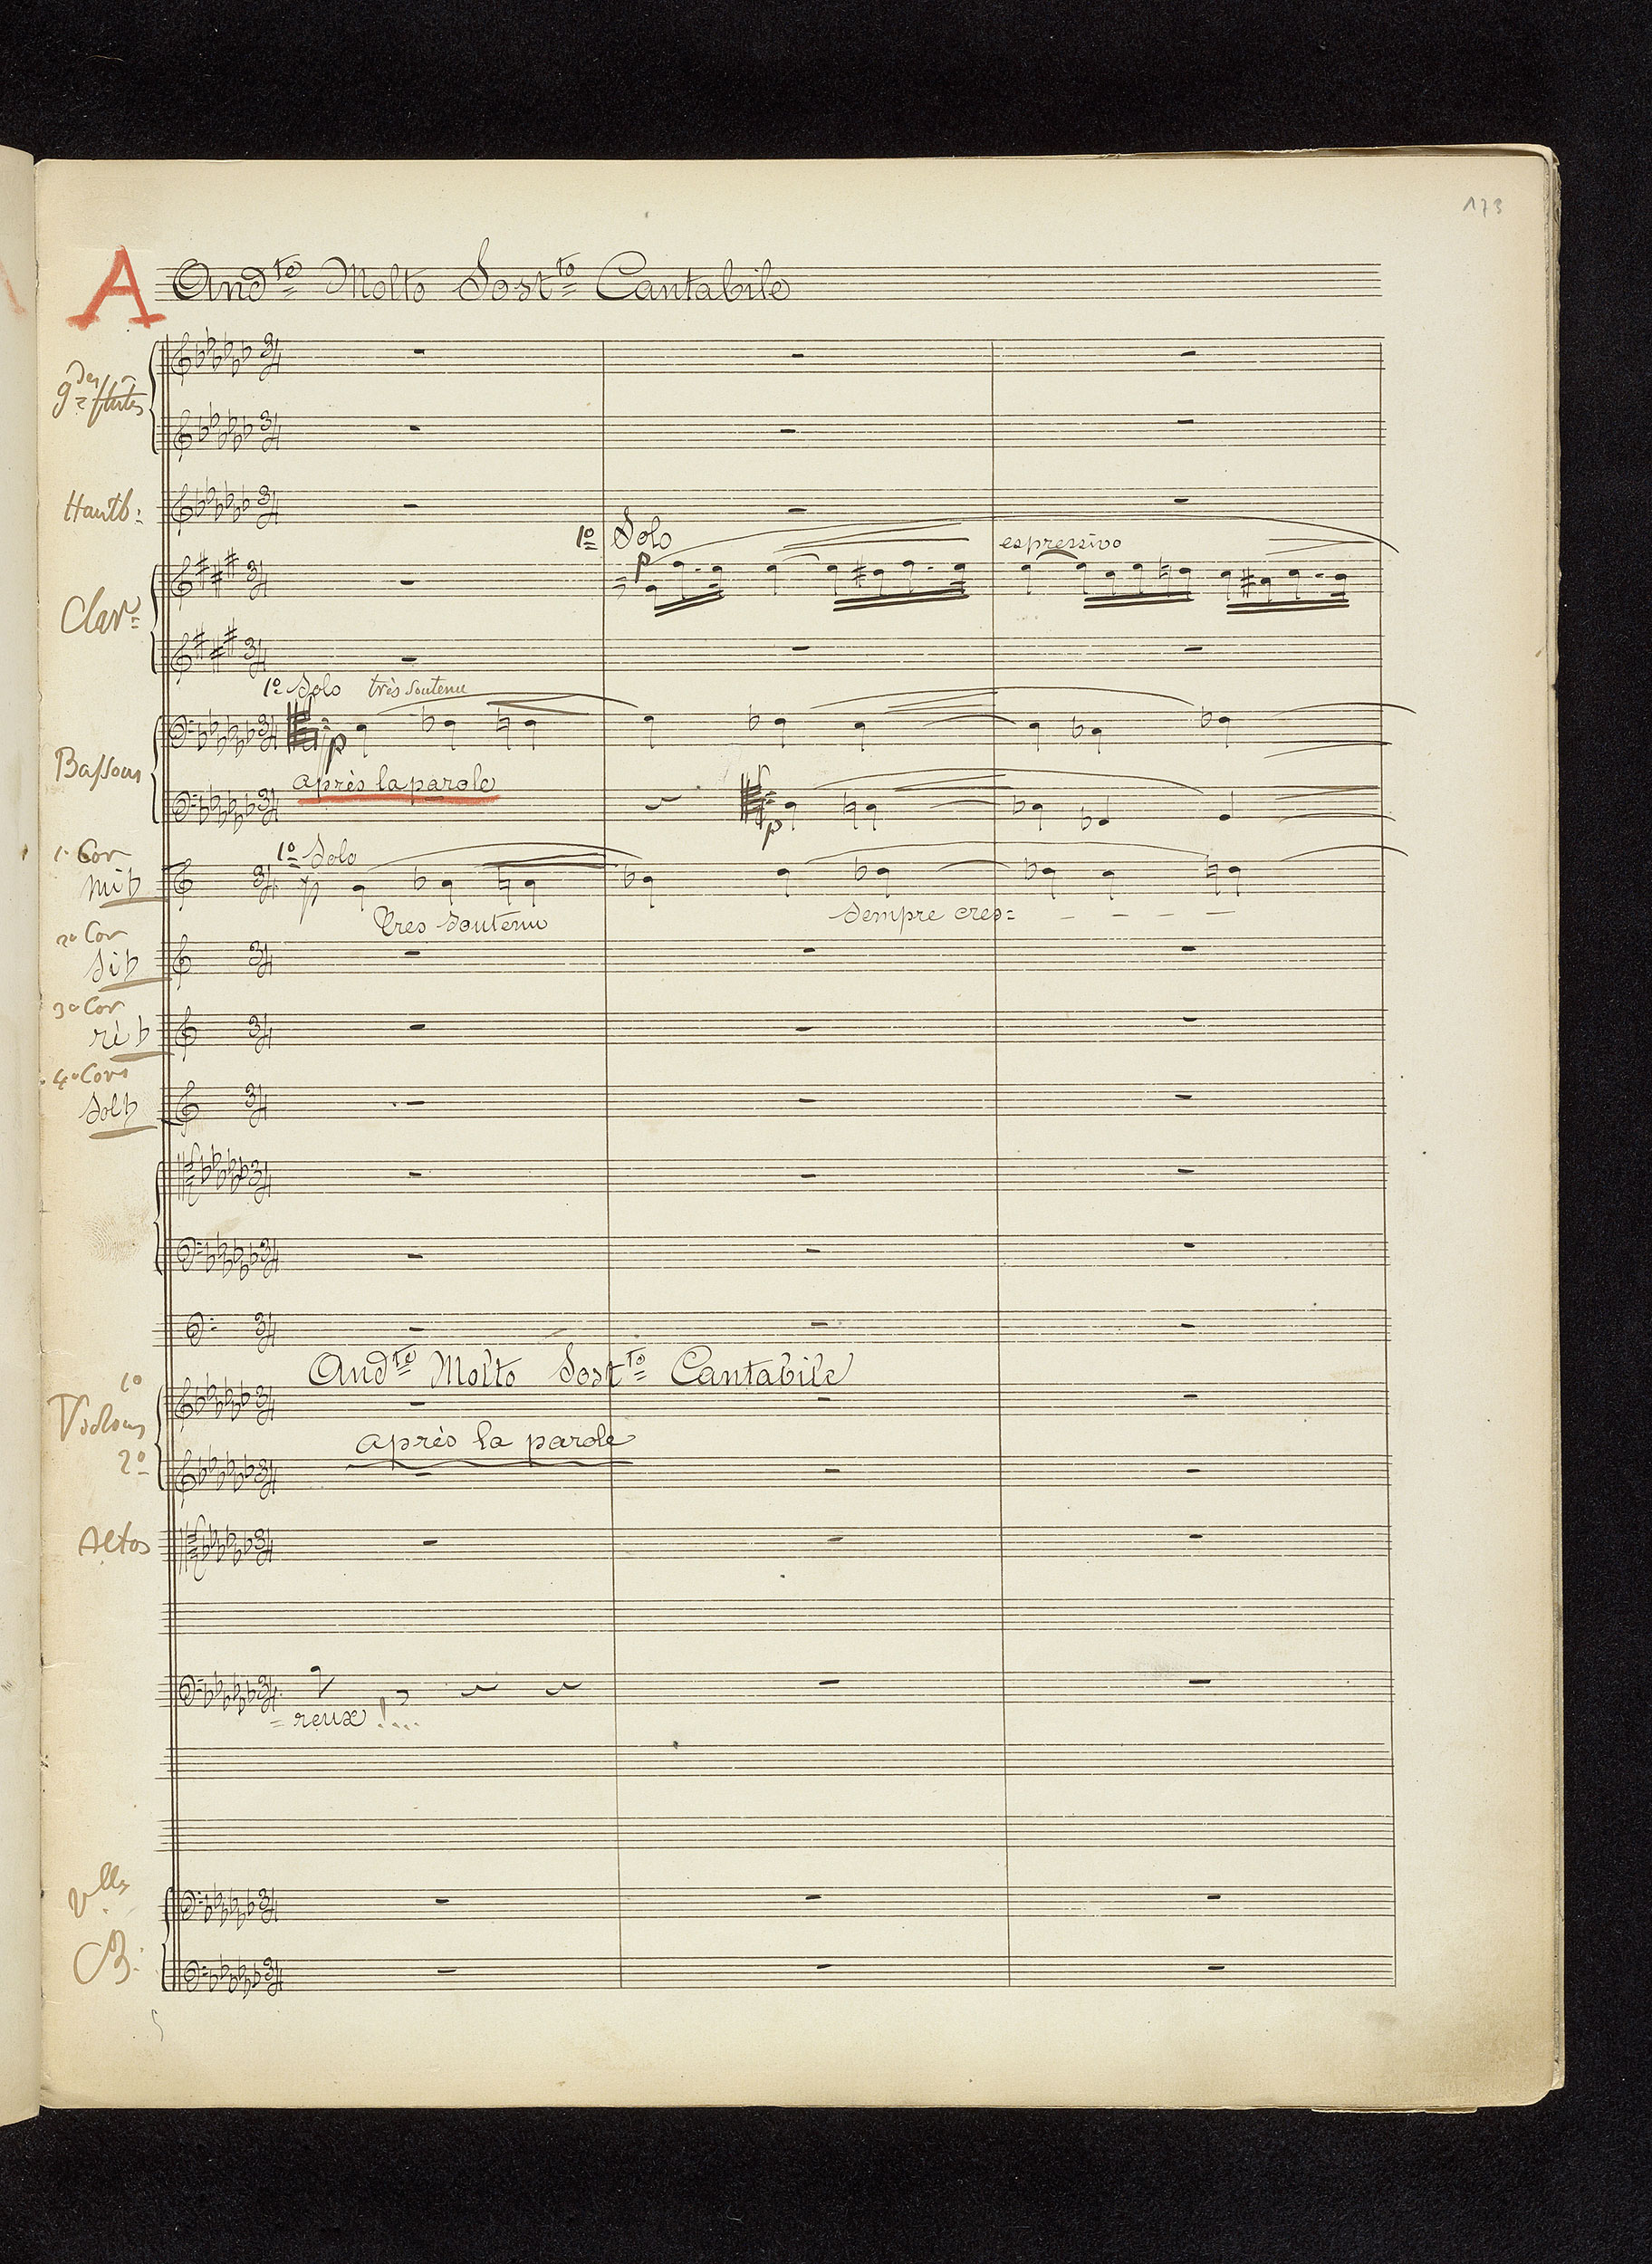 173
A
And.te Molto Sost.to Cantabile
gdes flûtes
Hautb:
1o Solo
p
espressivo
Clar:
1o Solo très soutenu
p
Bassons
après la parole
p
1o Cor
mi♭
1o Solo
p
Très soutenu
Sempre cres=
2o Cor
Si♭
3o Cor
ré♭
4o Cor
Sol♭
And.te Molto Sost.to Cantabile
1o
Violons
2o
après la parole
Altos
=reux!....
vlles
CB: